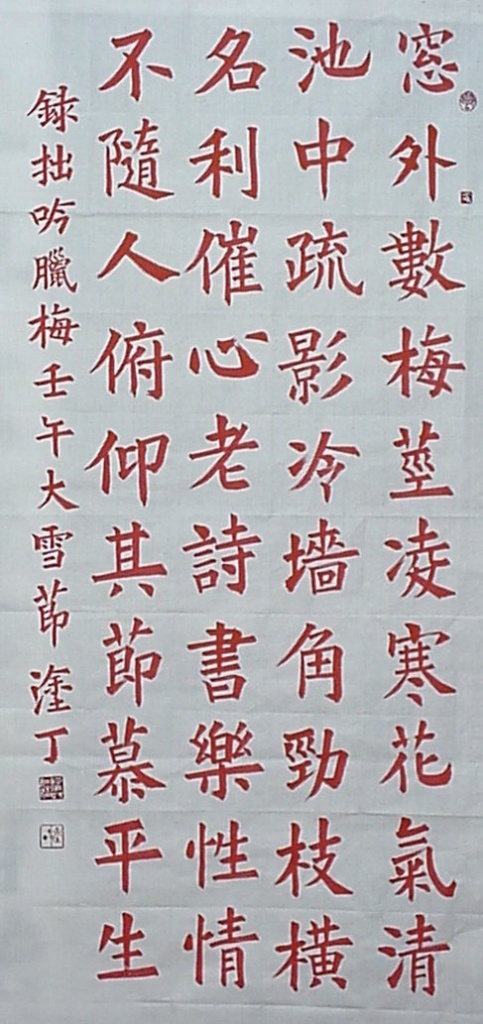 窓外數梅莖凌寒花氣清
池中疏影冷墻角勁枝橫
名利催心老詩書樂性情
不隨人俯仰其節慕平生
録拙吟臘梅壬午大雪節塗丁